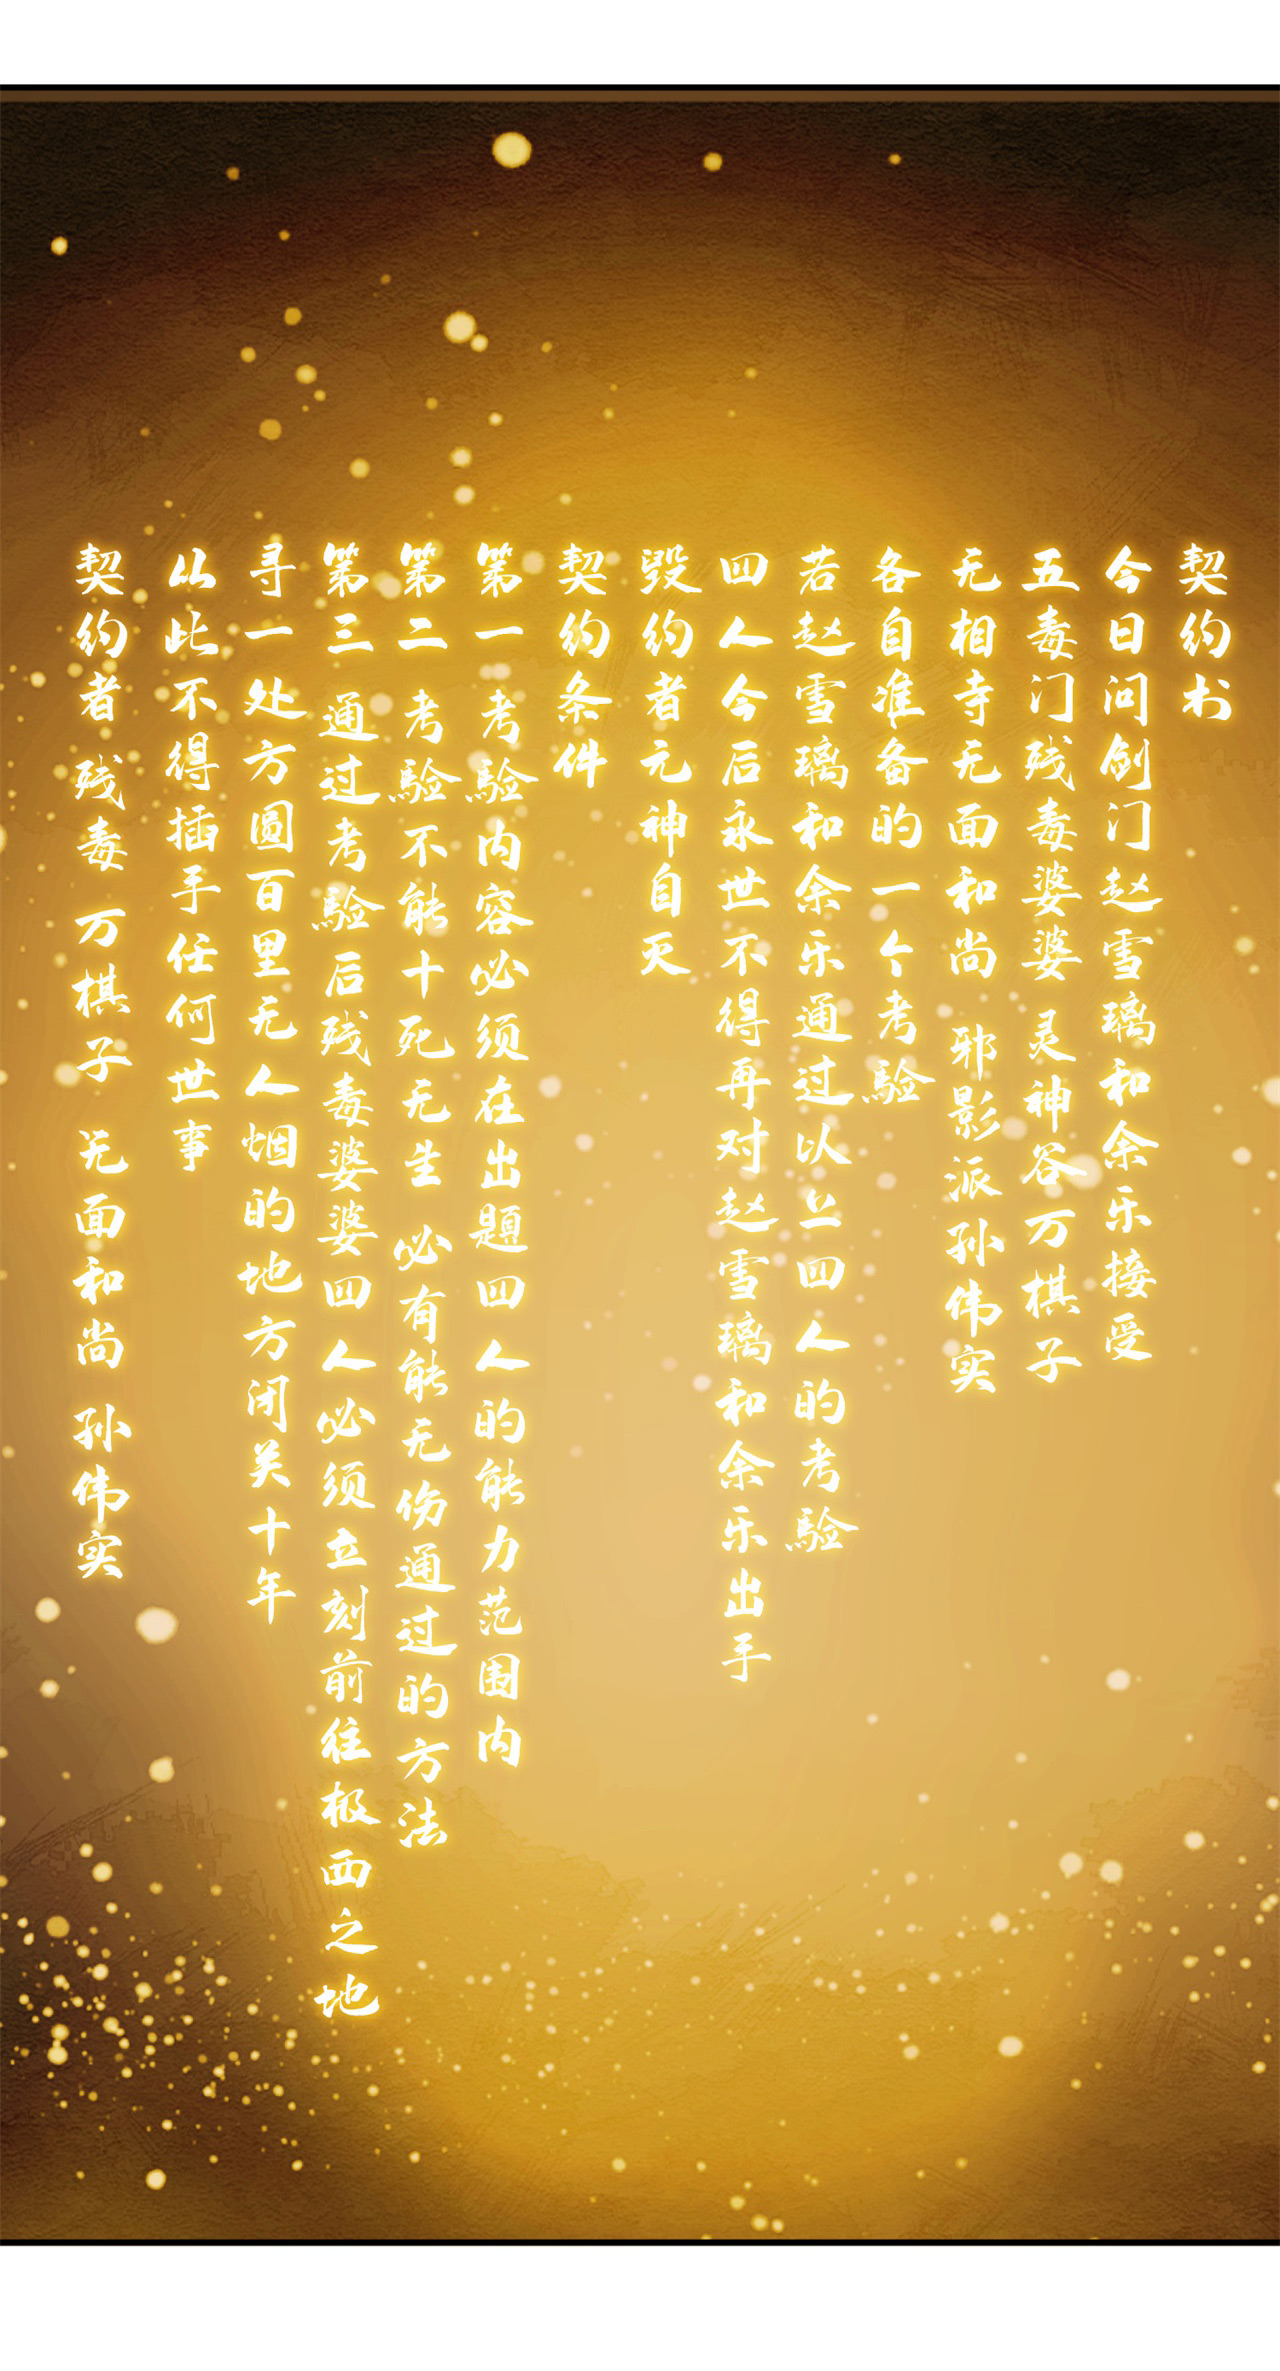 契约书
今日问剑门赵雪璃和余乐接受
五毒门残毒婆婆 灵神谷万棋子
无相寺无面和尚 邪影派孙伟实
各自准备的一个考验
若赵雪璃和余乐通过以上四人的考验
四人今后永世不得再对赵雪璃和余乐出手
毁约者元神自灭
契约条件
第一 考验内容必须在出题四人的能力范围内
第二 考验不能十死无生 必有能无伤通过的方法
第三 通过考验后残毒婆婆四人必须立刻前往极西之地
寻一处方圆百里无人烟的地方闭关十年
从此不得插手任何世事
契约者 残毒 万棋子 无面和尚 孙伟实